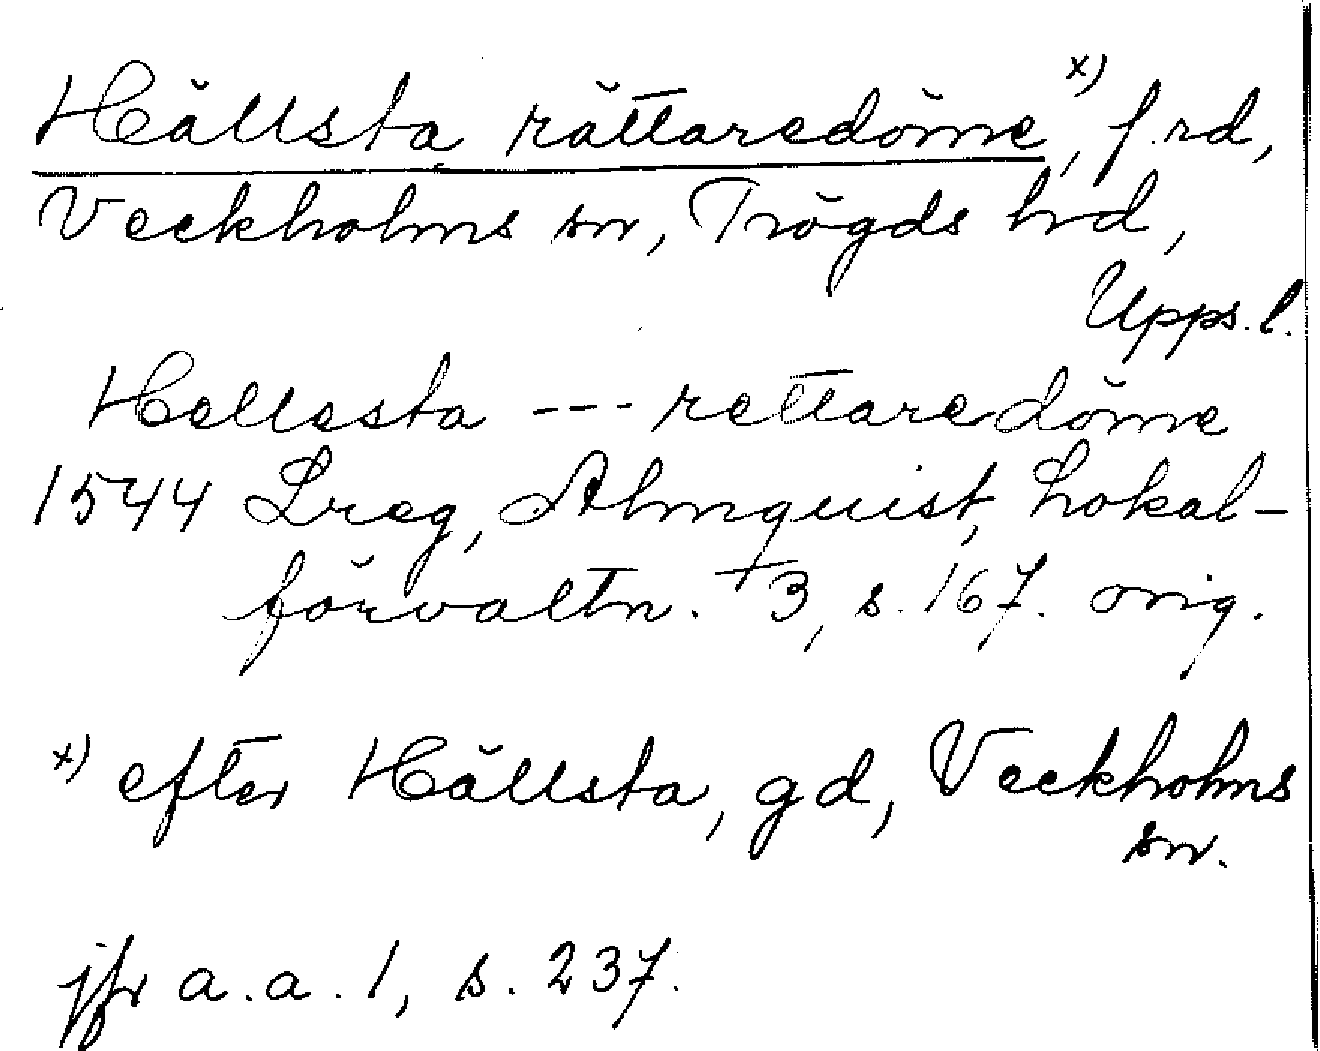 Hällsta rättaredöme, x) f.rd,
Veckholms sn, Trögds hrd,
Upps. l.
Hellesta --- rettaredöme
1544 Lreg, Almquist, Lokal-
förvaltn. 3, s. 167. orig.
x) efter Hällsta, gd, Veckholms
sn.
jfr a.a. 1, s. 237.